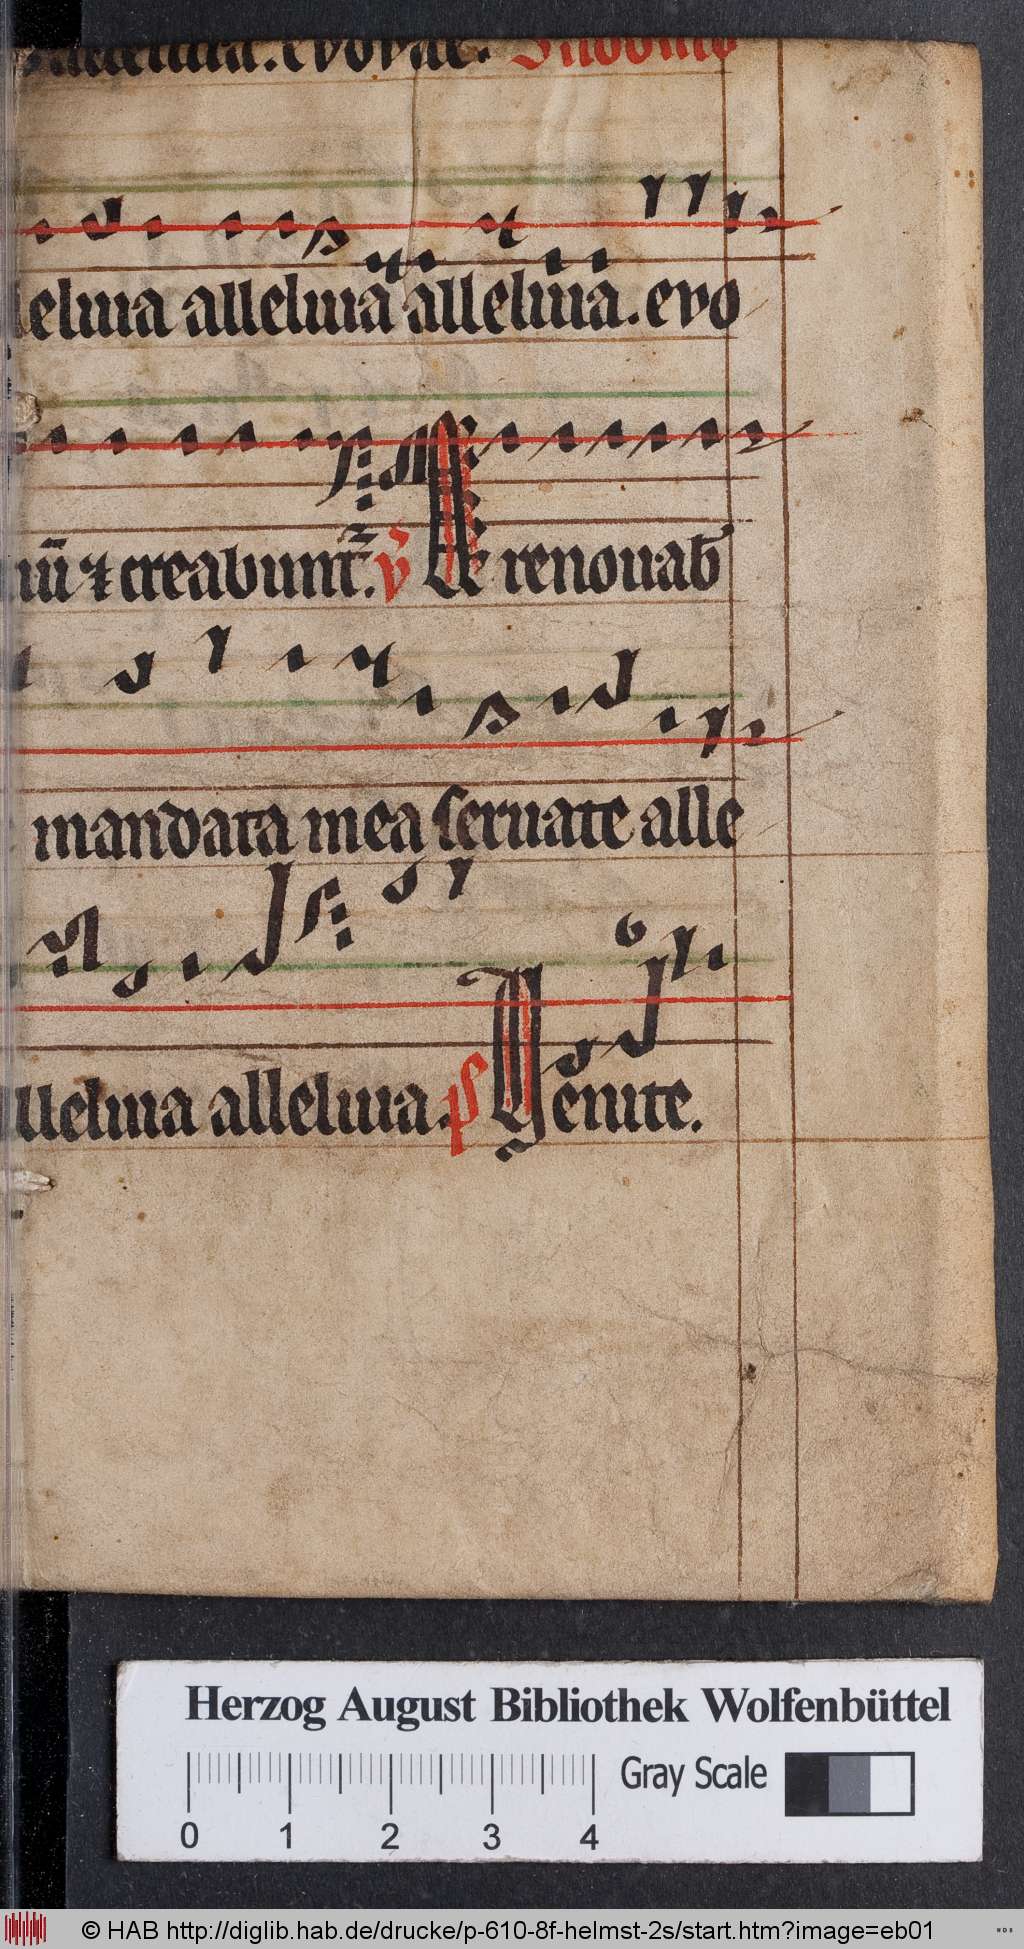 alleluia. evovae. In ôōīto
eluia alleluia alleluia. evo
⁊ creabunt᷑. v̄ Et renouab̄
mandata mea seruate alle
lleluia alleluia. ps Uenite.
Herzog August Bibliothek Wolfenbüttel
Gray Scale
0 1 2 3 4
© HAB http://diglib.hab.de/drucke/p-610-8f-helmst-2s/start.htm?image=eb01